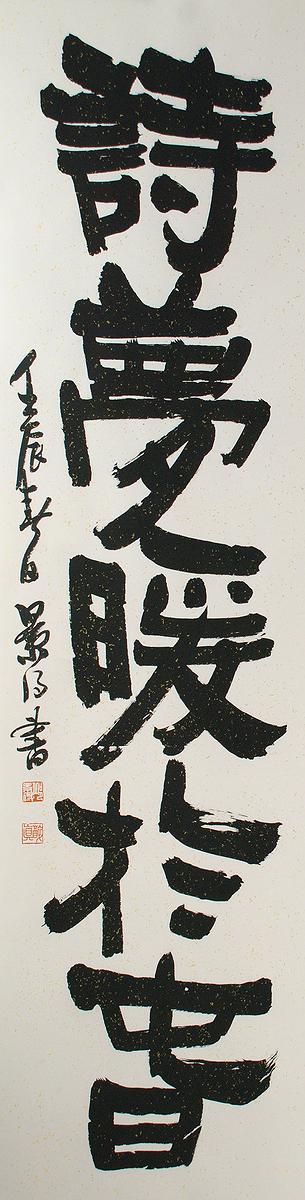 詩夢暖於春
壬辰春日 景 書